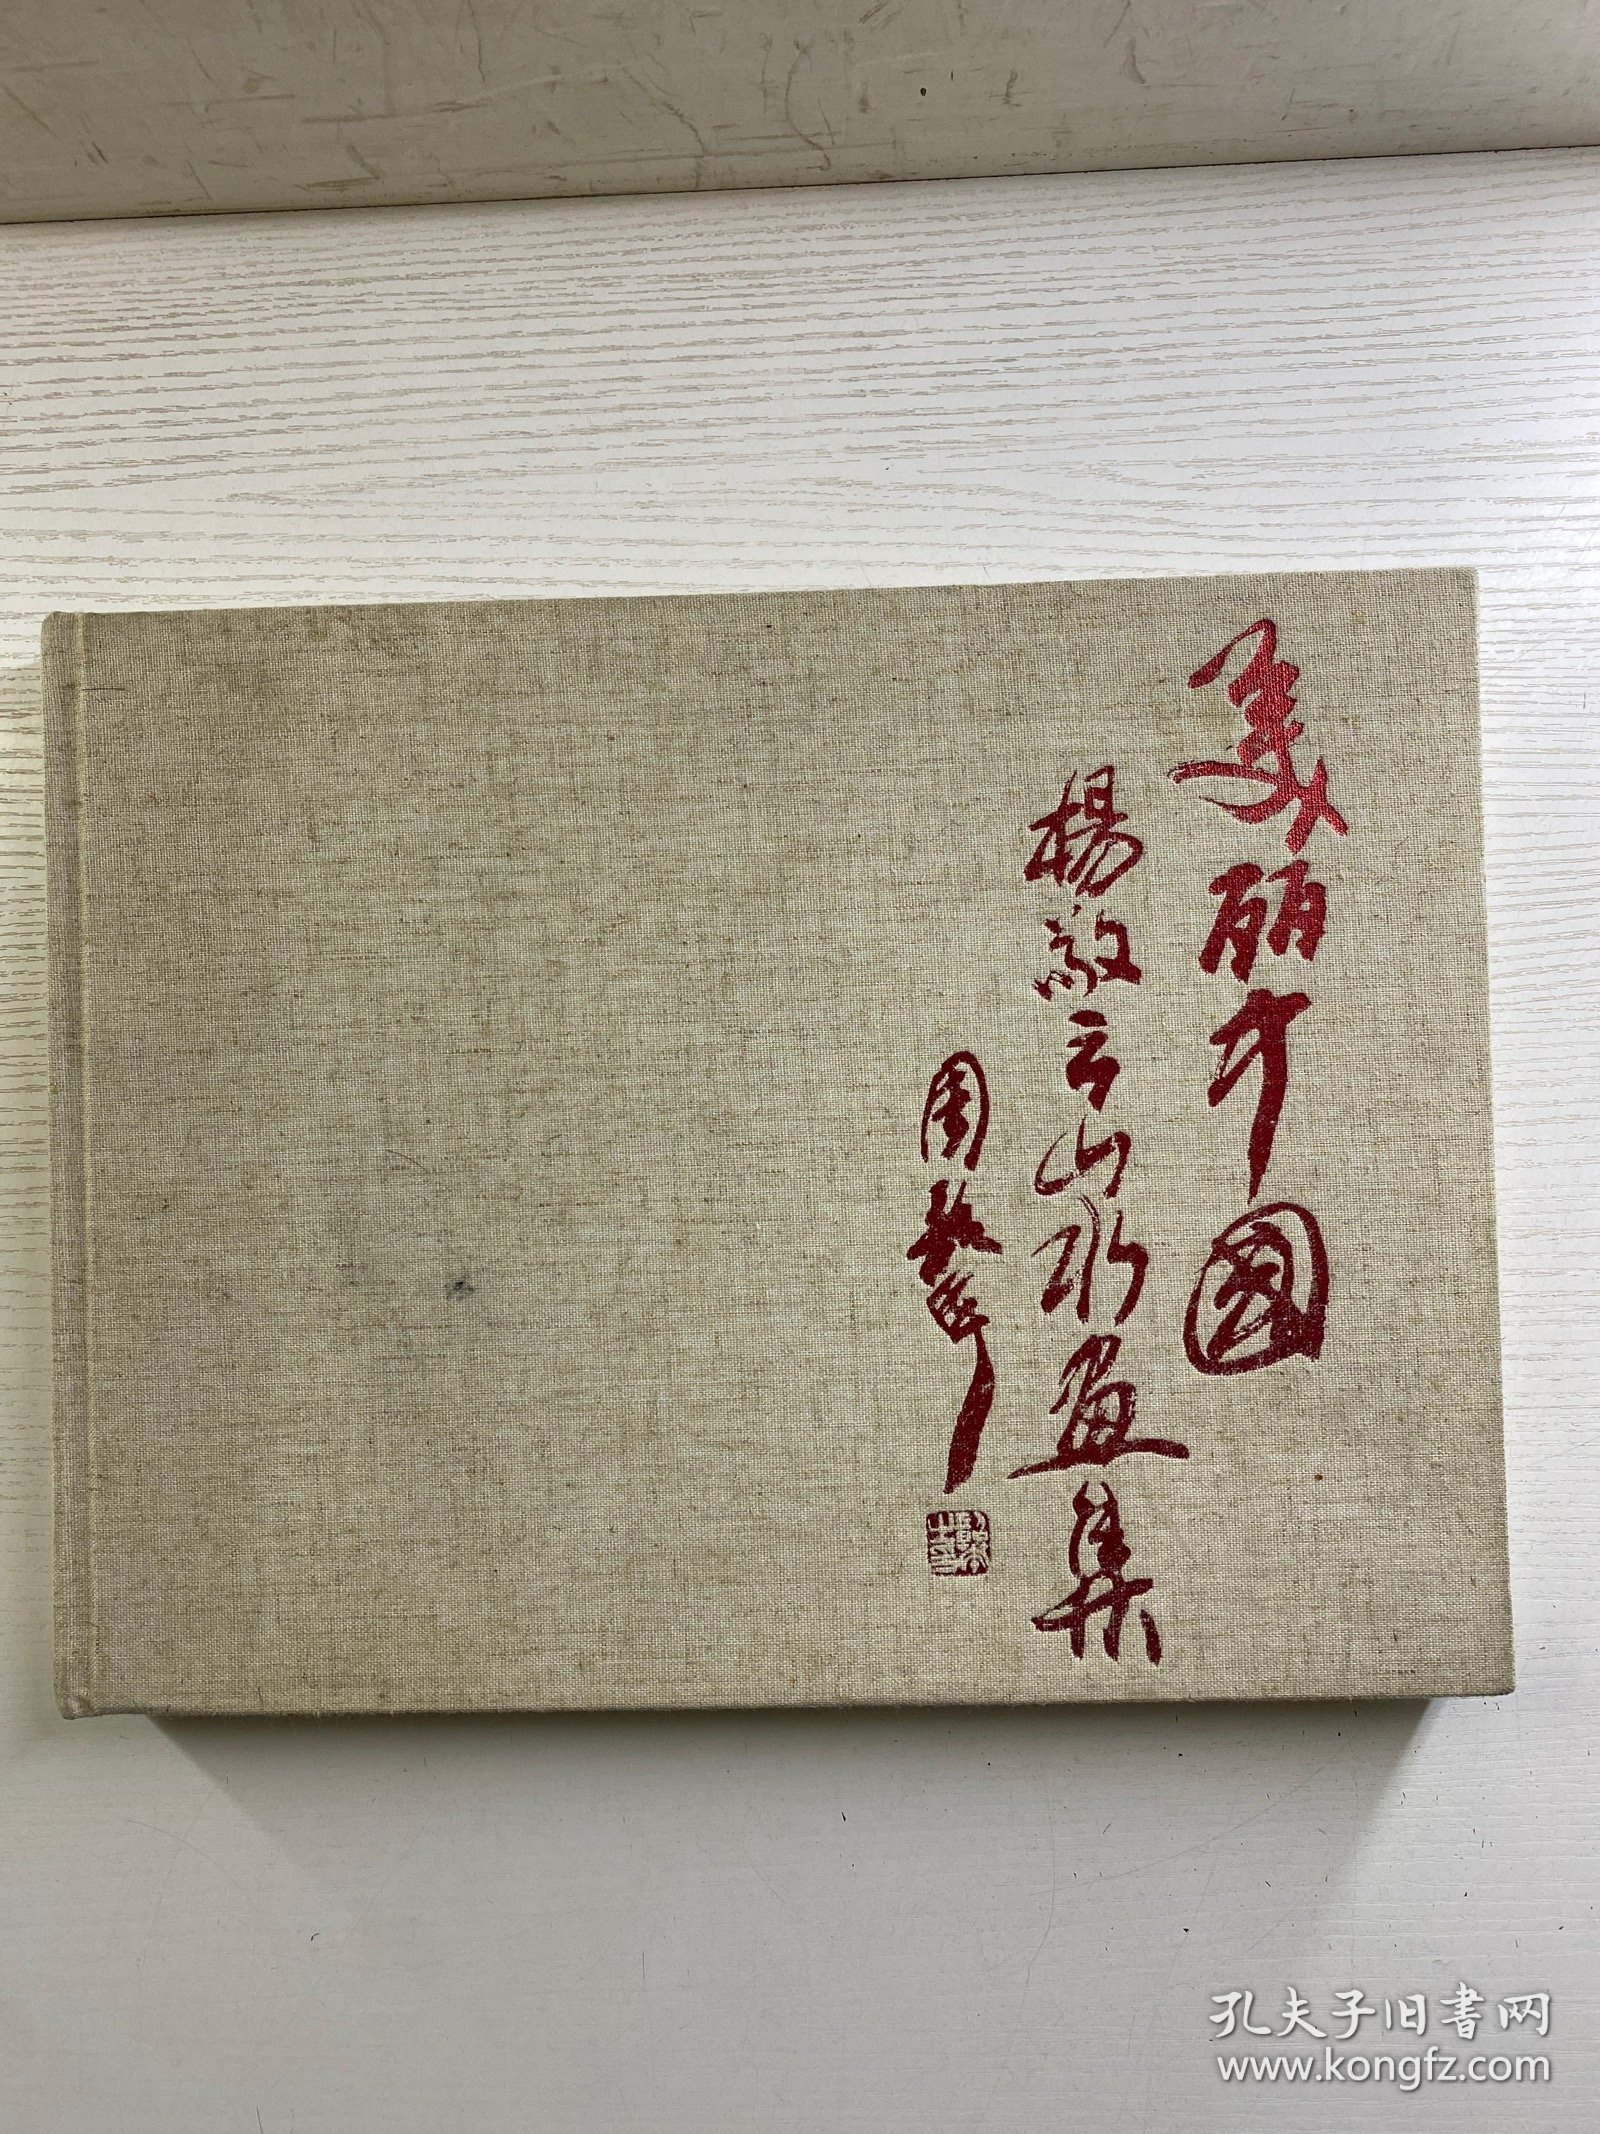 美丽中国
楊敬云山水画集
周韶华
孔夫子旧书网
www.kongfz.com